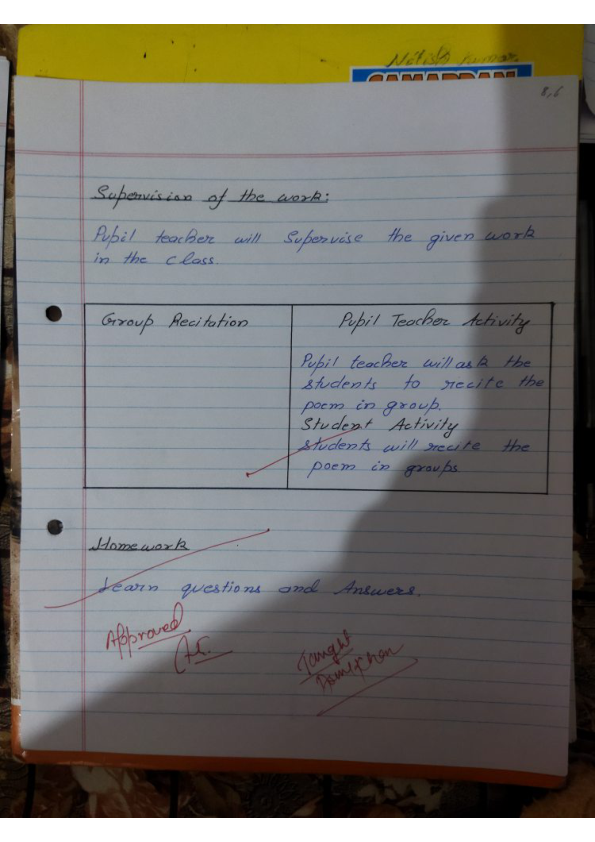 Nitish Kumar
SAMARPAN
8,6
Supervision of the work:
Pupil teacher will Supervise the given work
in the class.
Group Recitation
Pupil Teacher Activity
Pupil teacher will ask the
students to recite the
poem in group.
Student Activity
Students will recite the
poem in groups
Homework
Learn questions and Answers.
Approved
Taught